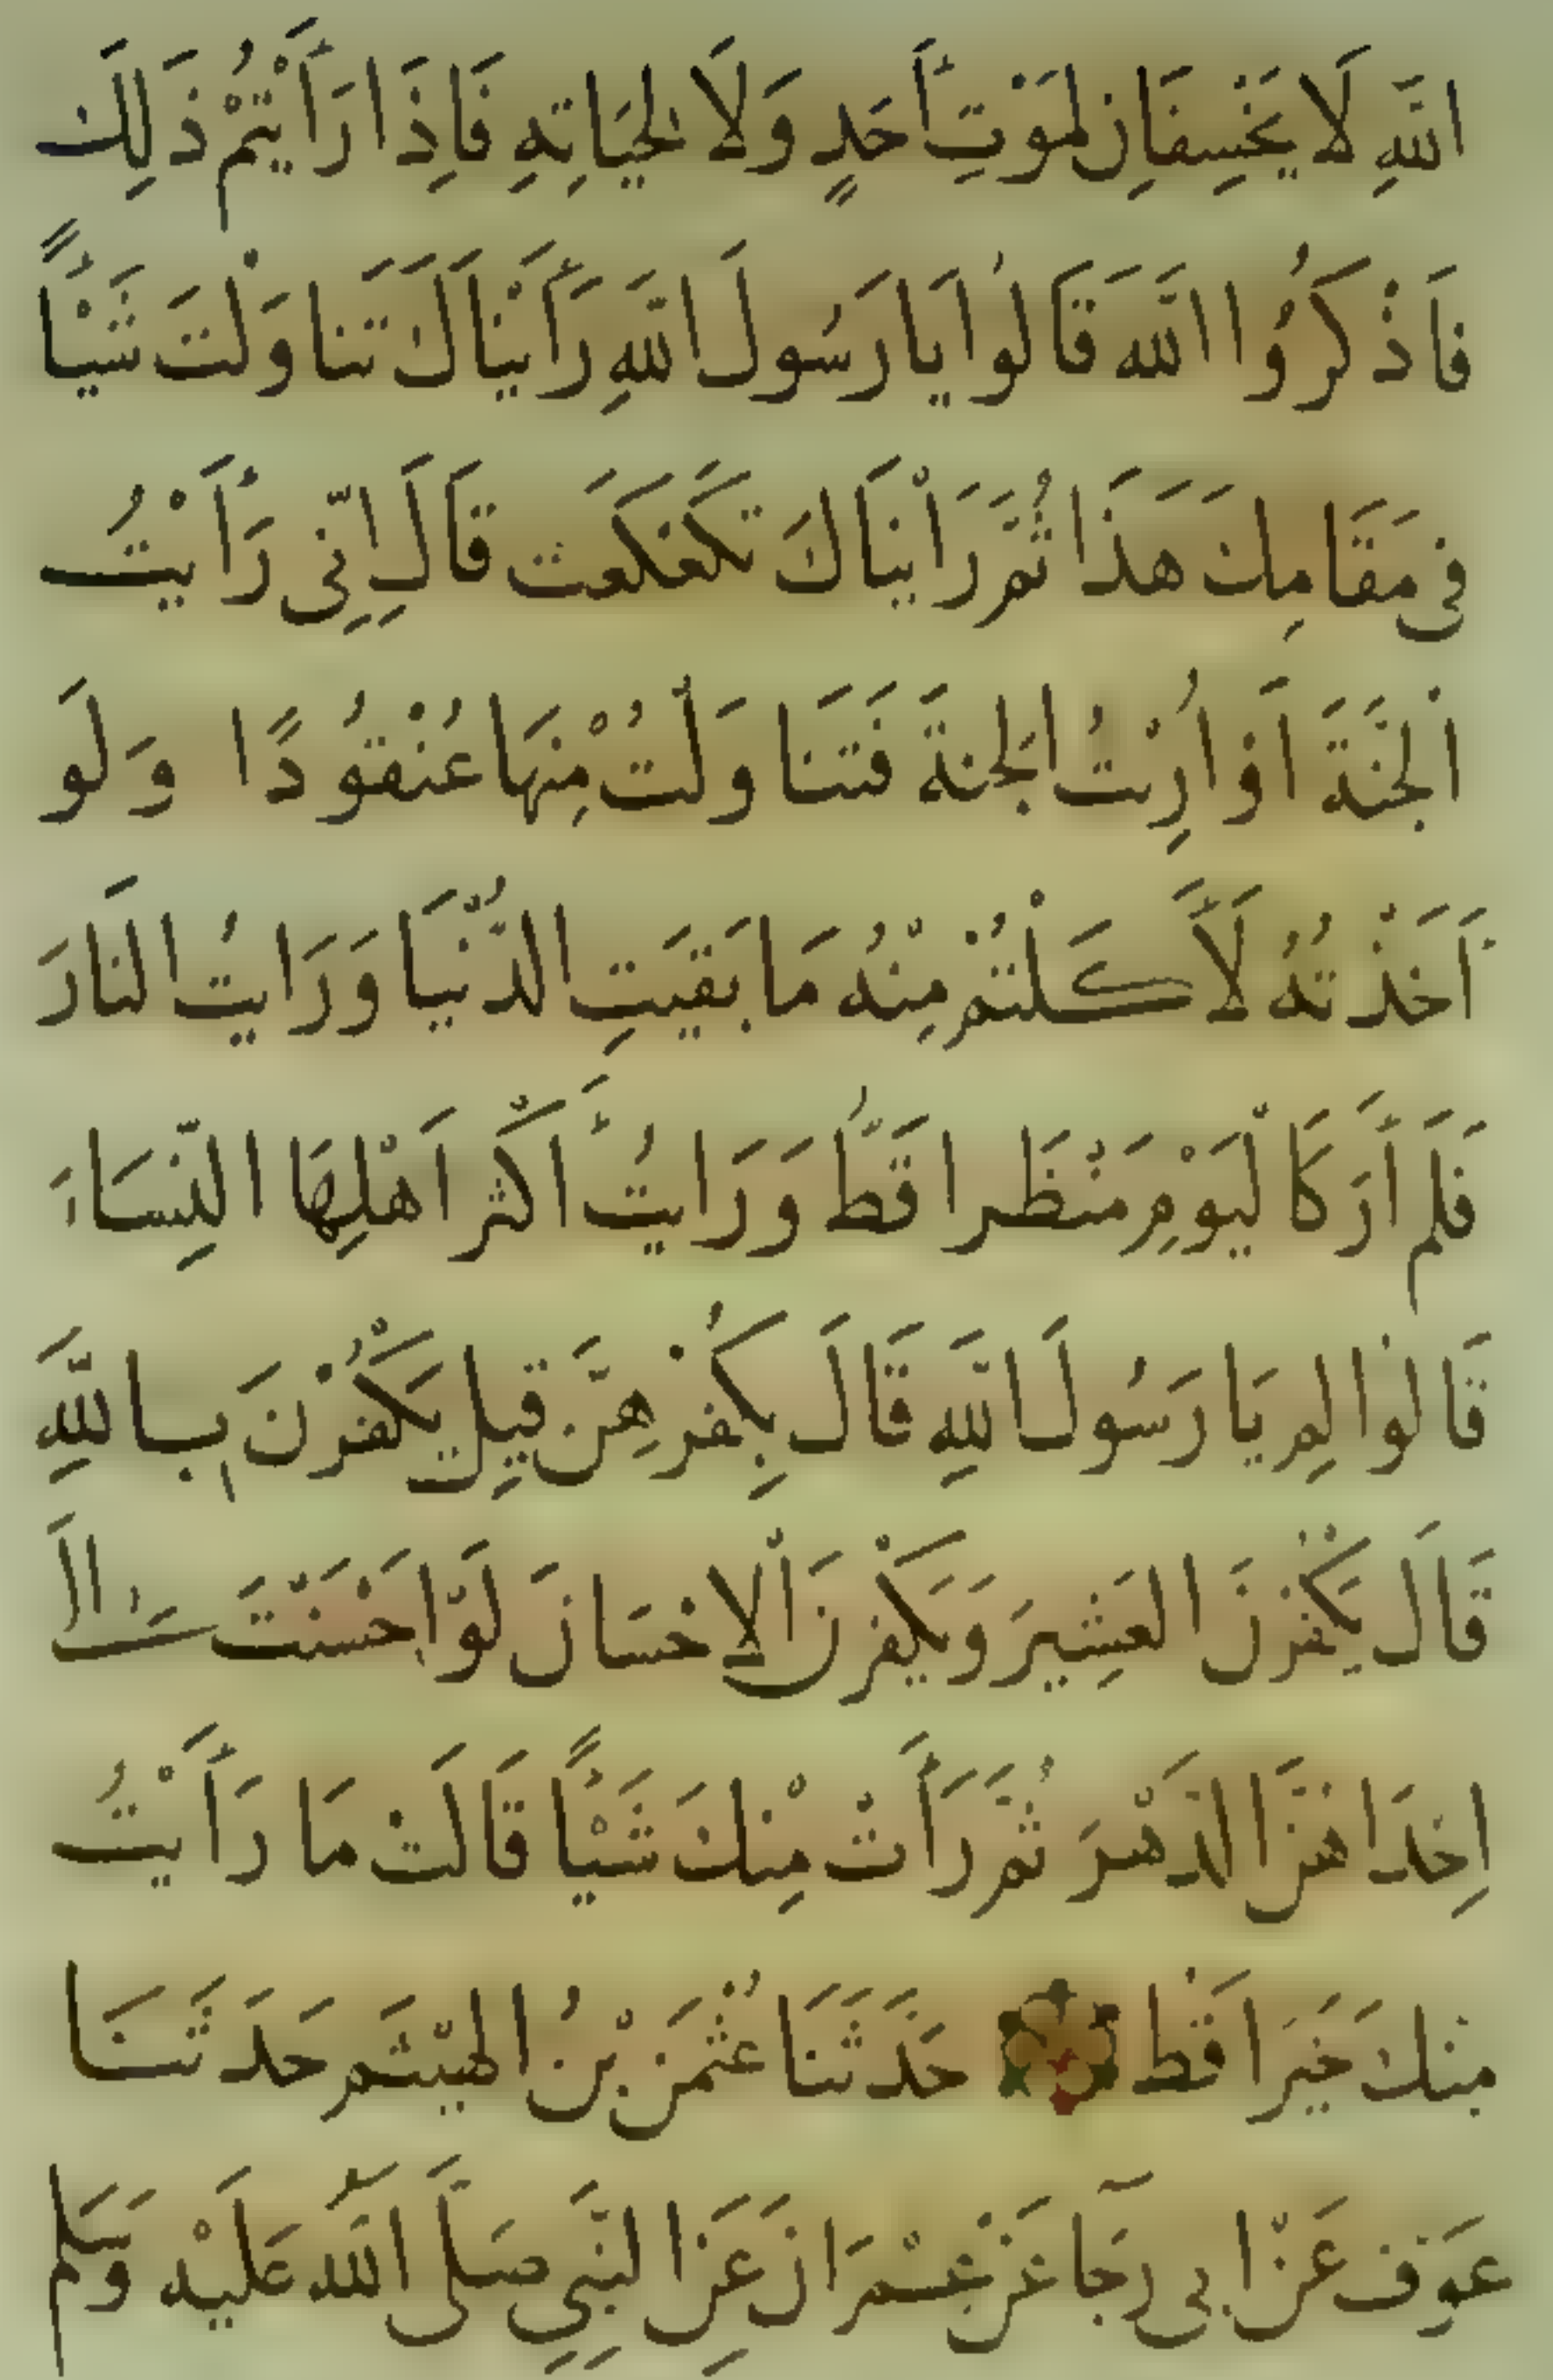 اللَّهِ لَا يَخْسِفَانِ لِمَوْتِ أَحَدٍ وَلَا لِحَيَاتِهِ فَإِذَا رَأَيْتُمْ ذَلِكَ
فَاذْكُرُوا اللَّه قَالُوا يَا رَسُولَ اللَّهِ رَأَيْنَاكَ تَنَاوَلْتَ شَيْأً
فِي مَقَامِكَ هَذَا ثُمَّ رَأَيْنَاكَ تَكَعْكَعْت قَالَ إِنِّي رَأَيْتُ
الْجَنَّةَ أَوْ أُرِيْتُ الجَنةَ فَتَنَاوَلْتُ مِنْهَا عُنْقُودًا وَلَو
أَخَذْتُهُ لَأَكَلْتُمْ مِنْهُ مَا بَقِيَتِ الدُّنْيَا وَرَايْتُ النَارَ
فَلَم أَرَ كَالْيَوْمِ مَنْظَرا قَطُّ وَرَايْتُ أَكْثَر أَهْلِهَا النِّسَاءَ
قَالُوا لِمَ يَا رَسُولَ اللَّهِ قَالَ بِكُفْرِهِنَّ قِيلَ يَكْفُرْنَ بِاللَّهِ
قَالَ يَكْفُرْنَ العَشِيرَ وَيَكْفُرْنَ الْإِحْسَانَ لَوْ أَحْسَنْتَ إِلَى
إِحْدَاهُنَّ الدَّهْرَ ثُمَّ رَأَتْ مِنْكَ شَيْأً قَالَتْ مَا رَأَيْتُ
مِنْكَ خَيْرَا قَطُّ حَدَّثَنَا عُثْمَنُ بْنُ الهَيْثَمِ حَدَثَنَا
عَوْف عَنْ أَبِي رَجَا عَنْ عِمْرَانَ عَنِ النَّبِيِّ صَلَّى اللَّهُ عَلَيْهِ وَسَلم